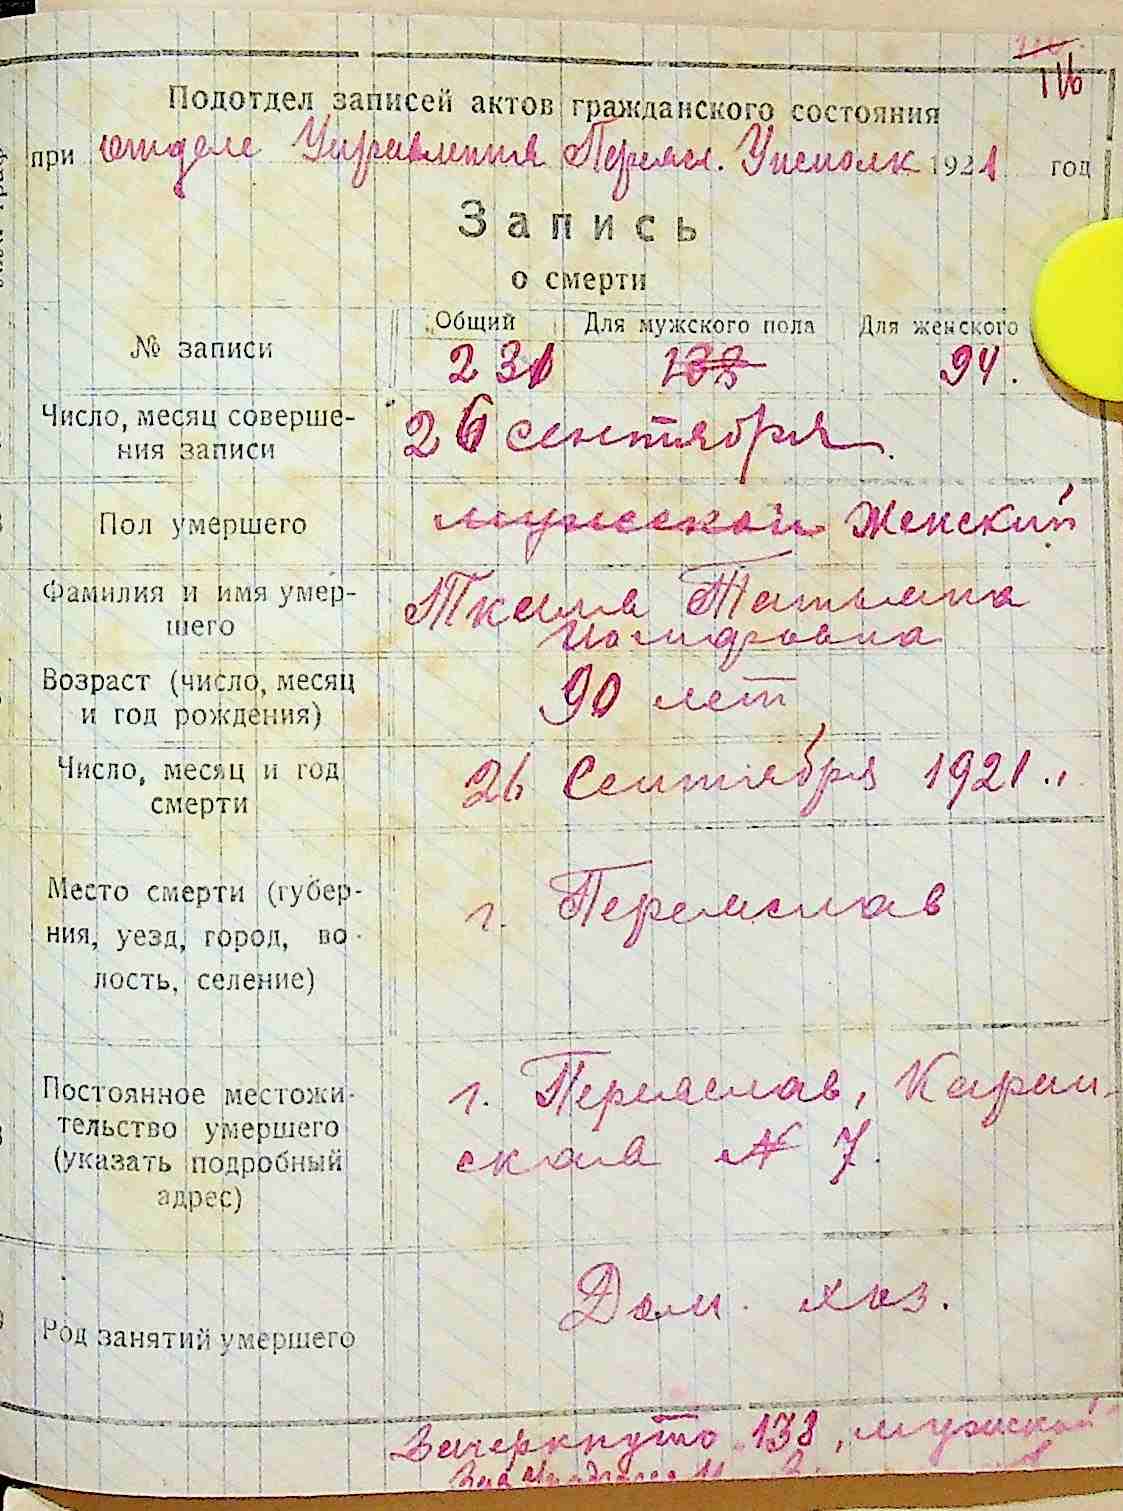 116
Подотдел записей актов гражданского состояния
при отделе Управления Переясл. Уисполк 1921 год
Запись
о смерти
№ записи
Общий Для мужского пола Для женского
231 138 94.
Число, месяц соверше-
ния записи
26 сентября.
Пол умершего
мужской Женский
Фамилия и имя умер-
шего
Татьяна
Возраст (число, месяц
и год рождения)
90 лет
Число, месяц и год
смерти
26 Сентября 1921.
Место смерти (губер-
ния, уезд, город, во-
лость, селение)
г. Переяслав
Постоянное местожи-
тельство умершего
(указать подробный
адрес)
г. Переяслав, Каран-
ская № 7.
Род занятий умершего
Дом. хоз.
Зачеркнуто 138, мужской